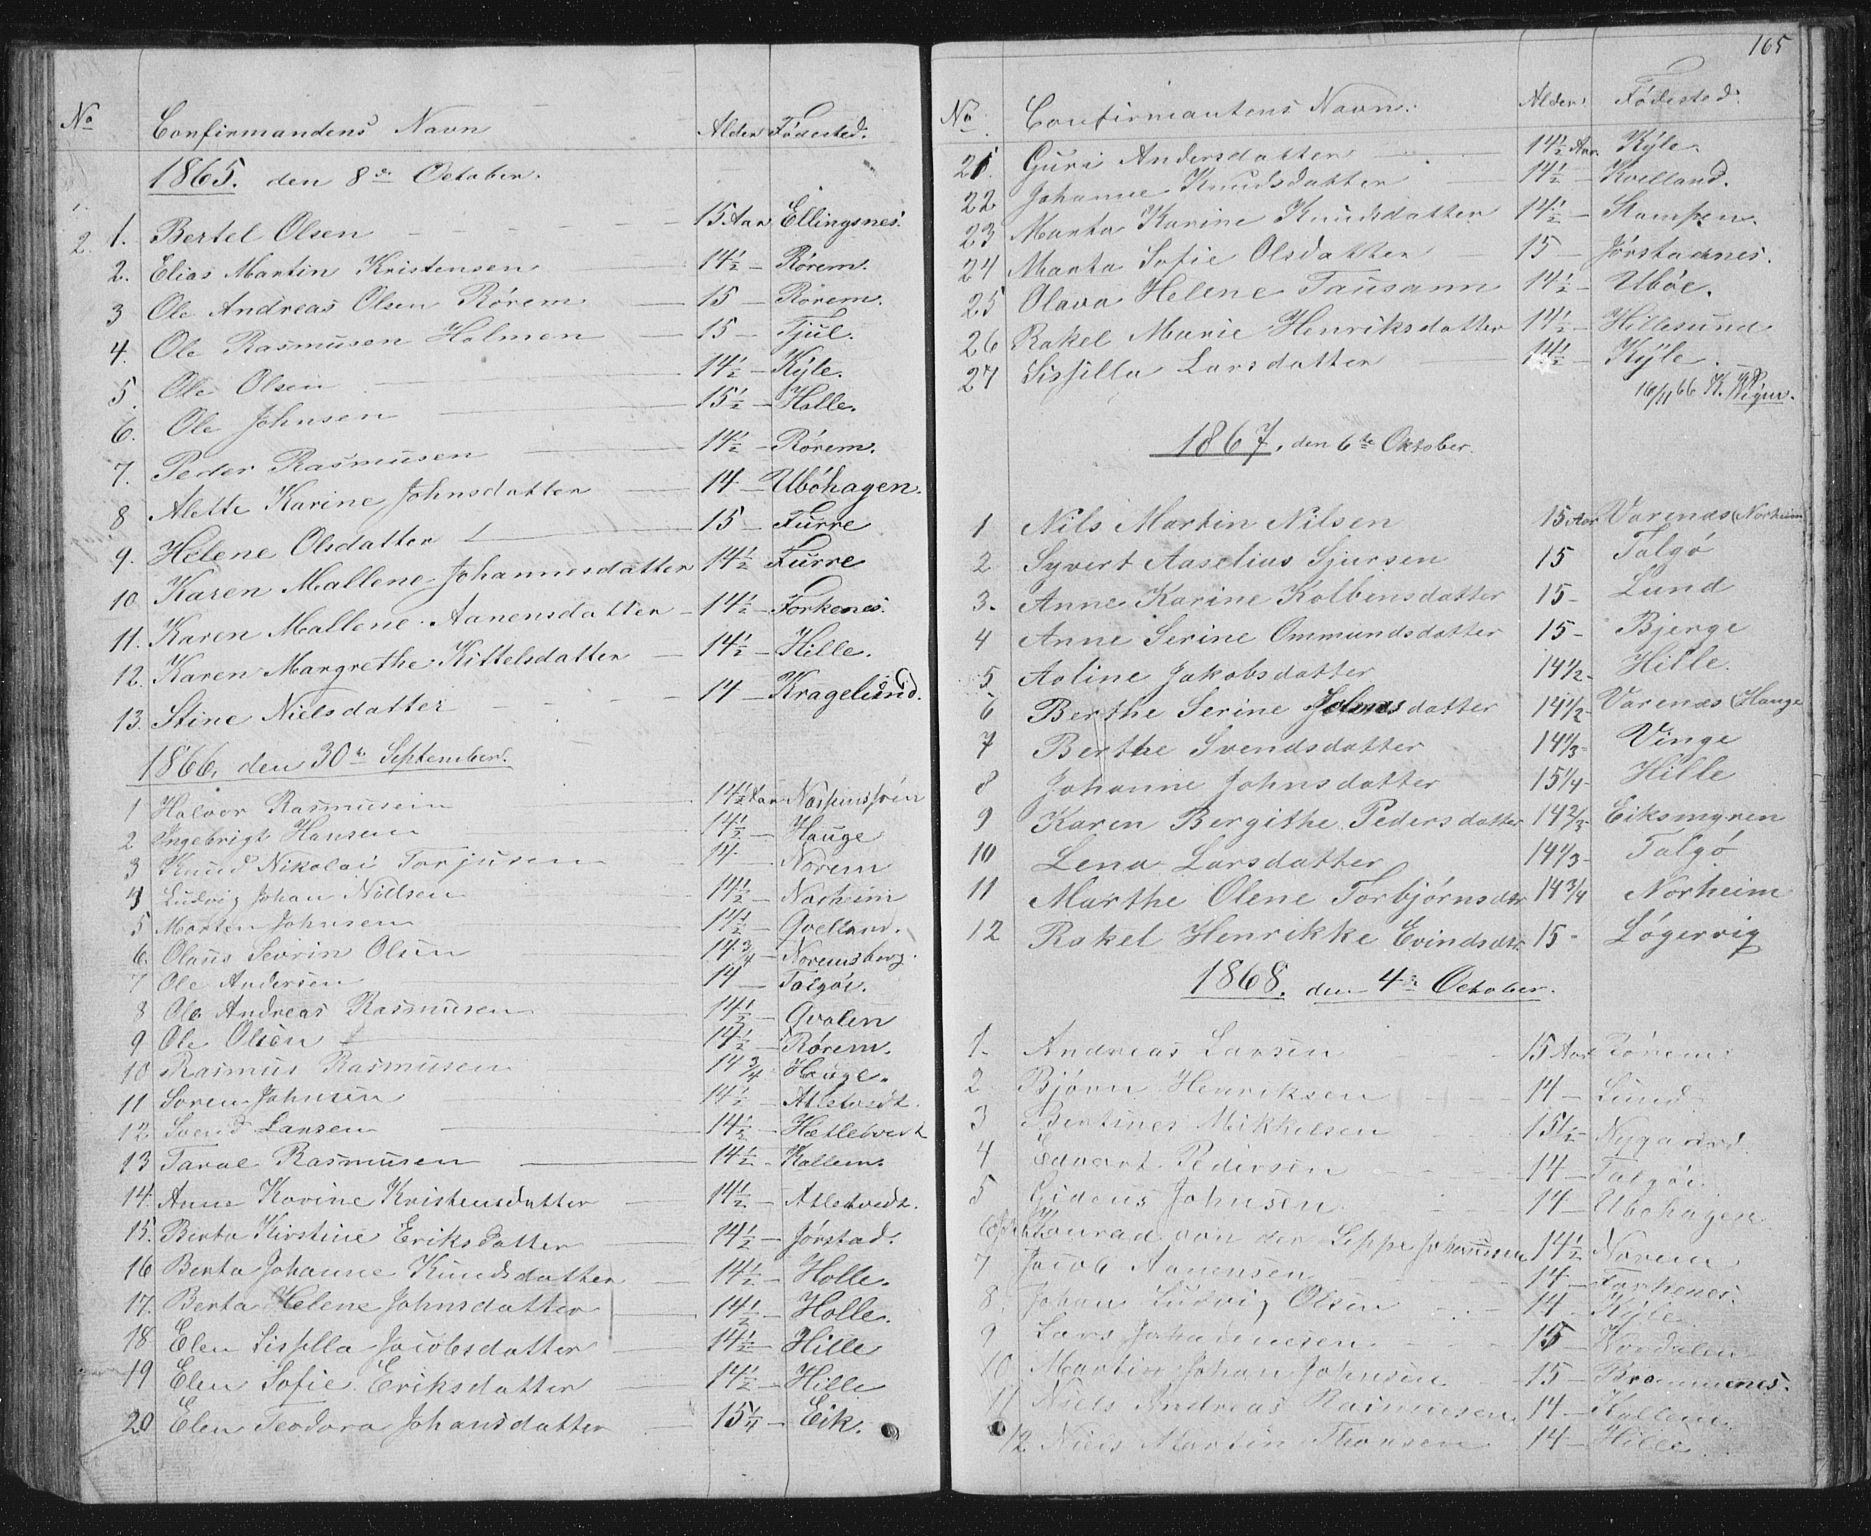 No Confirmandens Navn Alder Fødested.
1865. den 8de October.
1. Bertel Olsen 15 Aar Ellingsnes.
2. Elias Martin Kristensen 14½ Rørem.
3 Ole Andreas Olsen Rørem 15 Rørem.
4. Ole Rasmusen Holmen 15 Tjul.
5. Ole Olsen 14½ Kÿle.
6. Ole Johnsen 15½ Halle.
7. Peder Rasmusen 14½ Rørem.
8 Alette Karine Johnsdatter 14 Ubøhagen.
9. Helene Olsdatter 15 Furre
10 Karen Mallene Johannesdatter 14½ Furre
11. Karen Mallene Aanensdatter 14½ Forkenes.
12. Karen Margrethe Kittelsdatter 14½ Hille.
13. Stine Nielsdatter 14 Kragelund.
1866, den 30te September.
1 Halvor Rasmusen 14½ Aar
2 Ingebrigt Hansen 14½ Hauge
3 Knud Nikolai Torjusen 14 Norem
4 Ludvig Johan Nillsen 14½ Norheim
5 Morten Johnsen 14½ Qvelland.
6. Olaus Sevrin Olsen 14¾ Noremsberg.
7 Ole Andersen 14 Talgøi.
8 Ole Andreas Rasmusen 14½ Qvalen
9 Ole Olsen 14½ Rørem.
10 Rasmus Rasmusen 14¾ Hauge.
11 Soren Johnsen 14½ Atletvedt.
12 Svend Larsen 14½ Hetletvedt
13 Taral Rasmusen 14½ Kallem.
14. Anne Karine Kristensdatter 14½ Atletvedt.
15. Berta Kirstine Eriksdatter 14½ Jørstad.
16 Berta Johanne Knudsdatter 14½ Holle.
17. Berta Helene Johnsdatter 14½ Holle.
18. Elen Sissilla Jacobsdatter 14½ Hille
19 Elen Sofie Eriksdatter 14½ Hille
20 Elen Teodora Johansdatter 15¼ Eik.
165
No. Confirmantens Navn. Alder. Fødested.
21. Guri Andersdatter 14½ Aar. Kÿle.
22 Johanne Knudsdatter 14½ Kvelland.
23 Marta Karine Knudsdatter 14½ Stampen.
24 Marta Sofie Olsdatter 15 Jørstadnes.
25 Olava Helene Tausann 14½ Ubøe.
26 Rakel Marie Henriksdatter 14½ Hillesund
27 Sissilla Larsdatter 14½ Kÿle.
16/11 66
1867, den 6te Oktober.
1 Nils Martin Nilsen 15 Aar Varenæs (Norheim
2 Syvert Aaselius Sjursen 15 Talgø
3. Anne Karine Kolbensdatter 15 Lund
4 Anne Serine Ommundsdatter 15 Bjerge
5 Aoline Jakobsdatter 14½ Hille.
6 Berthe Serine datter 14½ Varenæs (Hauge
7 Berthe Svendsdatter 14⅓ Vinge
8 Johanne Johnsdatter 15¼ Hille
9 Karen Bergithe Pedersdatter 14⅔ Eiksmyren
10 Lena Larsdatter 14⅓ Talgø
11 Marthe Olene Torbjørnsdtr 14¾ Norheim
12 Rakel Henrikke Evindsdtr 15 Løgervig
1868. den 4de October.
1. Andreas Larsen 15 Aar Rørem.
2 Bjørn Henriksen 14 Lund.
3 Bertines Mikkelsen 15½ Nygaard.
4 Edvart Pedersen 14 Talgøi.
5 Gideus Johnsen 14 Ubøhagen
Konrad von der Lippe Johnsen 14½ Norem
7 Jacob Aanensen 14 Forkenes.
8 Johan Ludvig Olsen 14 Kÿle.
9 Lars Johannesen 15 Nordalen
10 Martin Johan Johnsen 15 Brommenes.
11 Niels Andreas Rasmusen 14 Kallem.
12 Niels Martin Thorsen 14 Hille